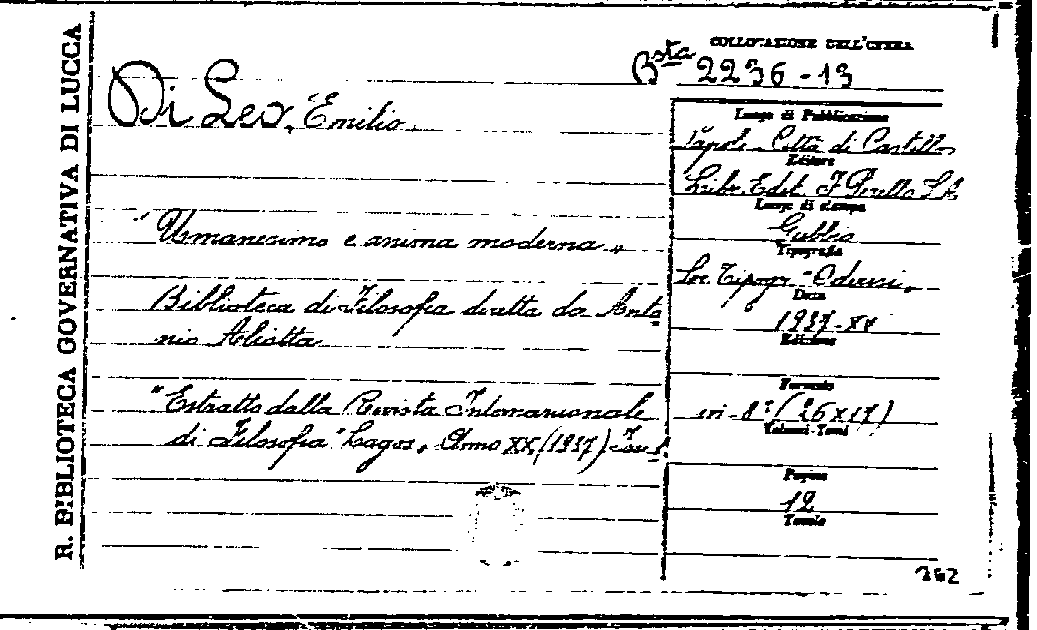 R. BIBLIOTECA GOVERNATIVA DI LUCCA
COLLOCAZIONE DELL'OPERA
Bsta 2236-13
Di Leo, Emilio.
"Umanesimo e anima moderna"
Biblioteca di Filosofia diretta da Anto
nio Aliotta
"Estratto dalla Rivista Internazionale
di Filosofia" Logos, Anno XX (1937) Fasc.
Luogo di Pubblicazione
Napoli - Città di Castello
Editore
Libr. Edit. F. Perrella S.A.
Luogo di stampa
Gubbio
Tipografia
Soc. Tipogr. Oderisi.
Data
1937-XV
Edizione
Formato
in-8° (26x17)
Volumi-Tomi
Pagine
12
Tavole
362